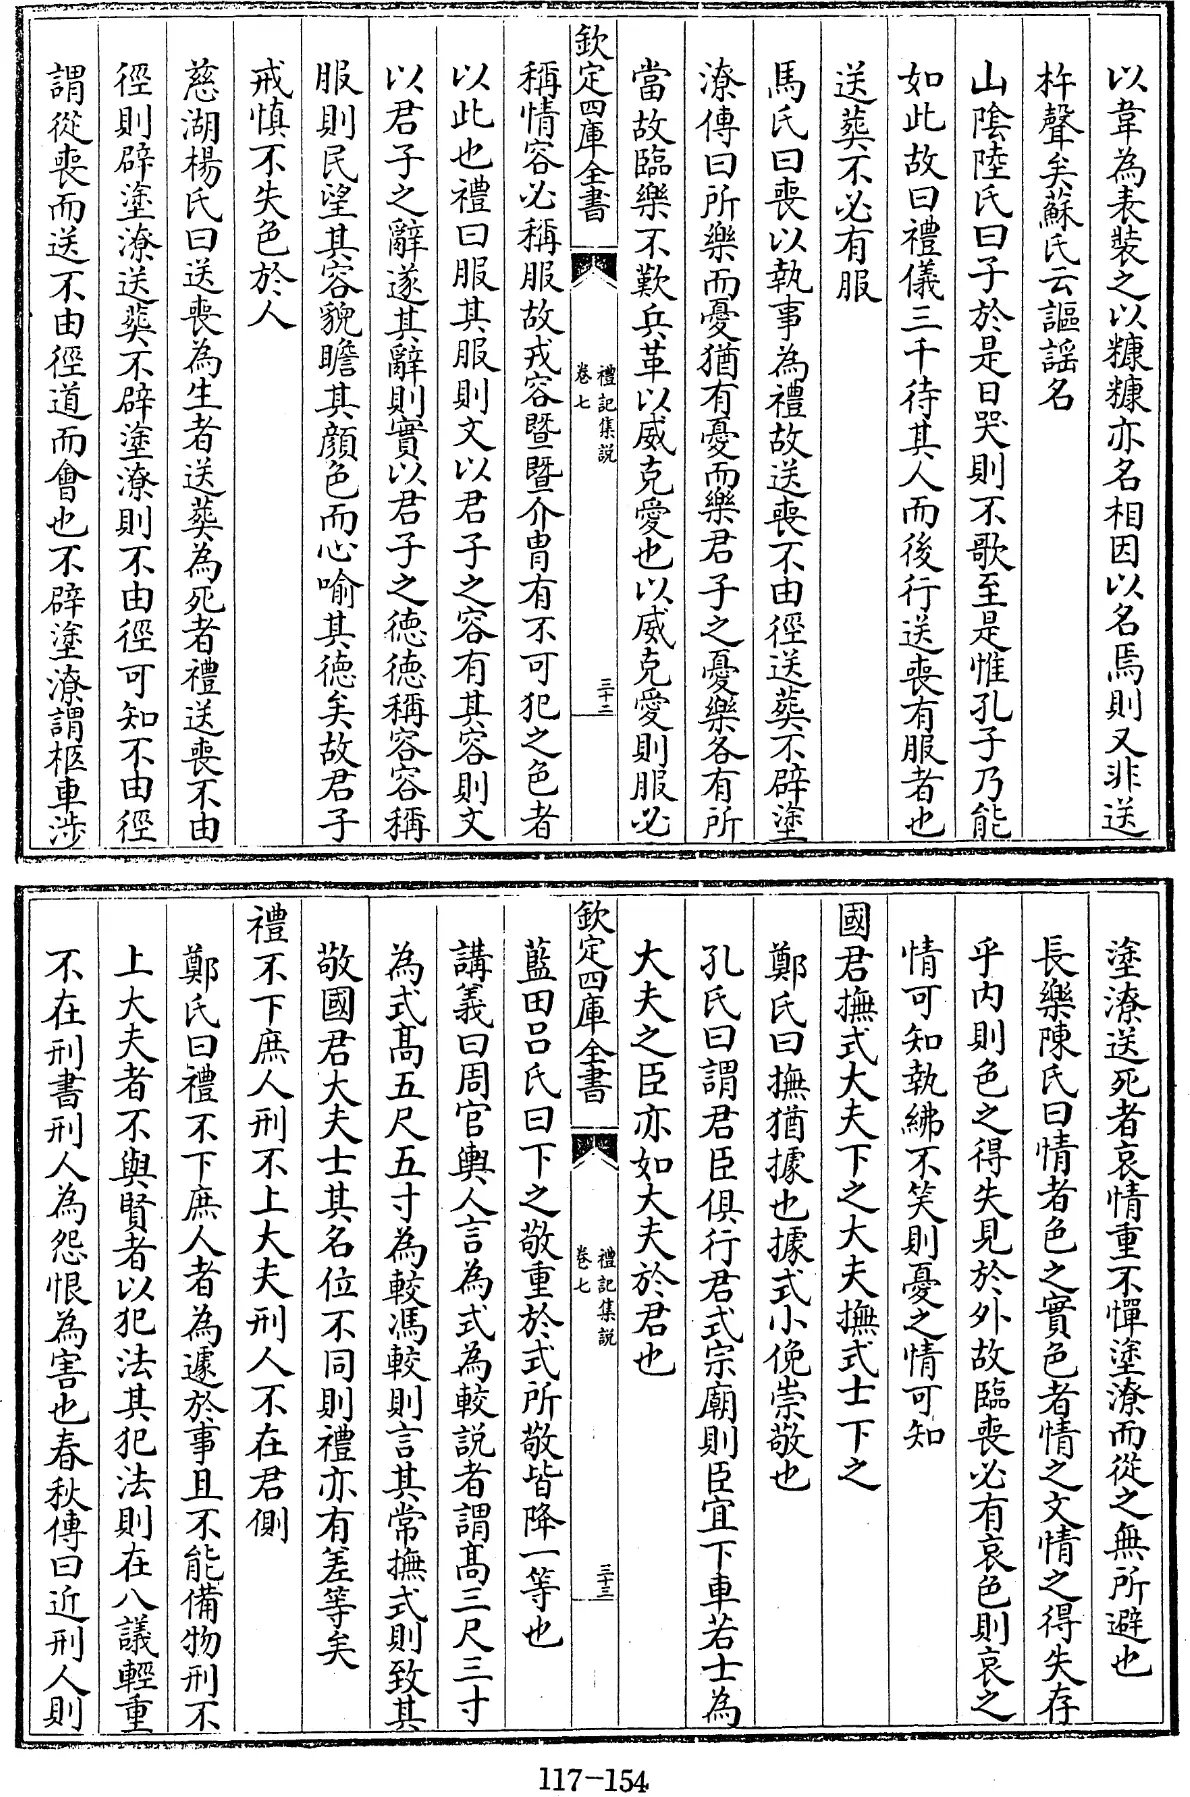 以韋為表裝之以糠糠亦名相因以名焉則又非送
杵聲矣蘇氏云謳謡名
山陰陸氏曰子於是日哭則不歌至是惟孔子乃能
如此故曰禮儀三千待其人而後行送喪有服者也
送葬不必有服
馬氏曰喪以執事為禮故送喪不由徑送葬不辟塗
潦傳曰所樂而憂猶有憂而樂君子之憂樂各有所
當故臨樂不歎兵革以威克愛也以威克愛則服必
欽定四庫全書
禮記集説
卷七
三十二
稱情容必稱服故戎容暨暨介胄有不可犯之色者
以此也禮曰服其服則文以君子之容有其容則文
以君子之辭遂其辭則實以君子之德德稱容容稱
服則民望其容貌瞻其顔色而心喻其德矣故君子
戒慎不失色於人
慈湖楊氏曰送喪為生者送葬為死者禮送喪不由
徑則辟塗潦送葬不辟塗潦則不由徑可知不由徑
謂從喪而送不由徑道而會也不辟塗潦謂柩車涉
塗潦送死者哀情重不憚塗潦而從之無所避也
長樂陳氏曰情者色之實色者情之文情之得失存
乎内則色之得失見於外故臨喪必有哀色則哀之
情可知執紼不笑則憂之情可知
國君撫式大夫下之大夫撫式士下之
鄭氏曰撫猶據也據式小俛崇敬也
孔氏曰謂君臣俱行君式宗廟則臣宜下車若士為
大夫之臣亦如大夫於君也
欽定四庫全書
禮記集説
卷七
三十三
藍田吕氏曰下之敬重於式所敬皆降一等也
講義曰周官輿人言為式為較説者謂髙三尺三寸
為式髙五尺五寸為較馮較則言其常撫式則致其
敬國君大夫士其名位不同則禮亦有差等矣
禮不下庶人刑不上大夫刑人不在君側
鄭氏曰禮不下庶人者為遽於事且不能備物刑不
上大夫者不與賢者以犯法其犯法則在八議輕重
不在刑書刑人為怨恨為害也春秋傳曰近刑人則
117-154